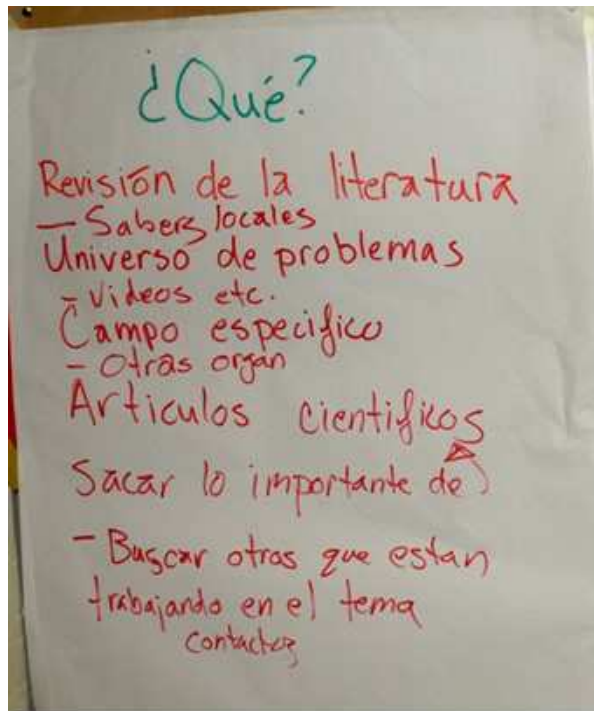 ¿Qué?
Revisión de la literatura
- Sabers locales
Universo de problemas
- Videos etc.
Campo especifico
- Otras organ
Articulos cientificos
Sacar lo importante de
- Buscar otros que estan
trabajando en el tema